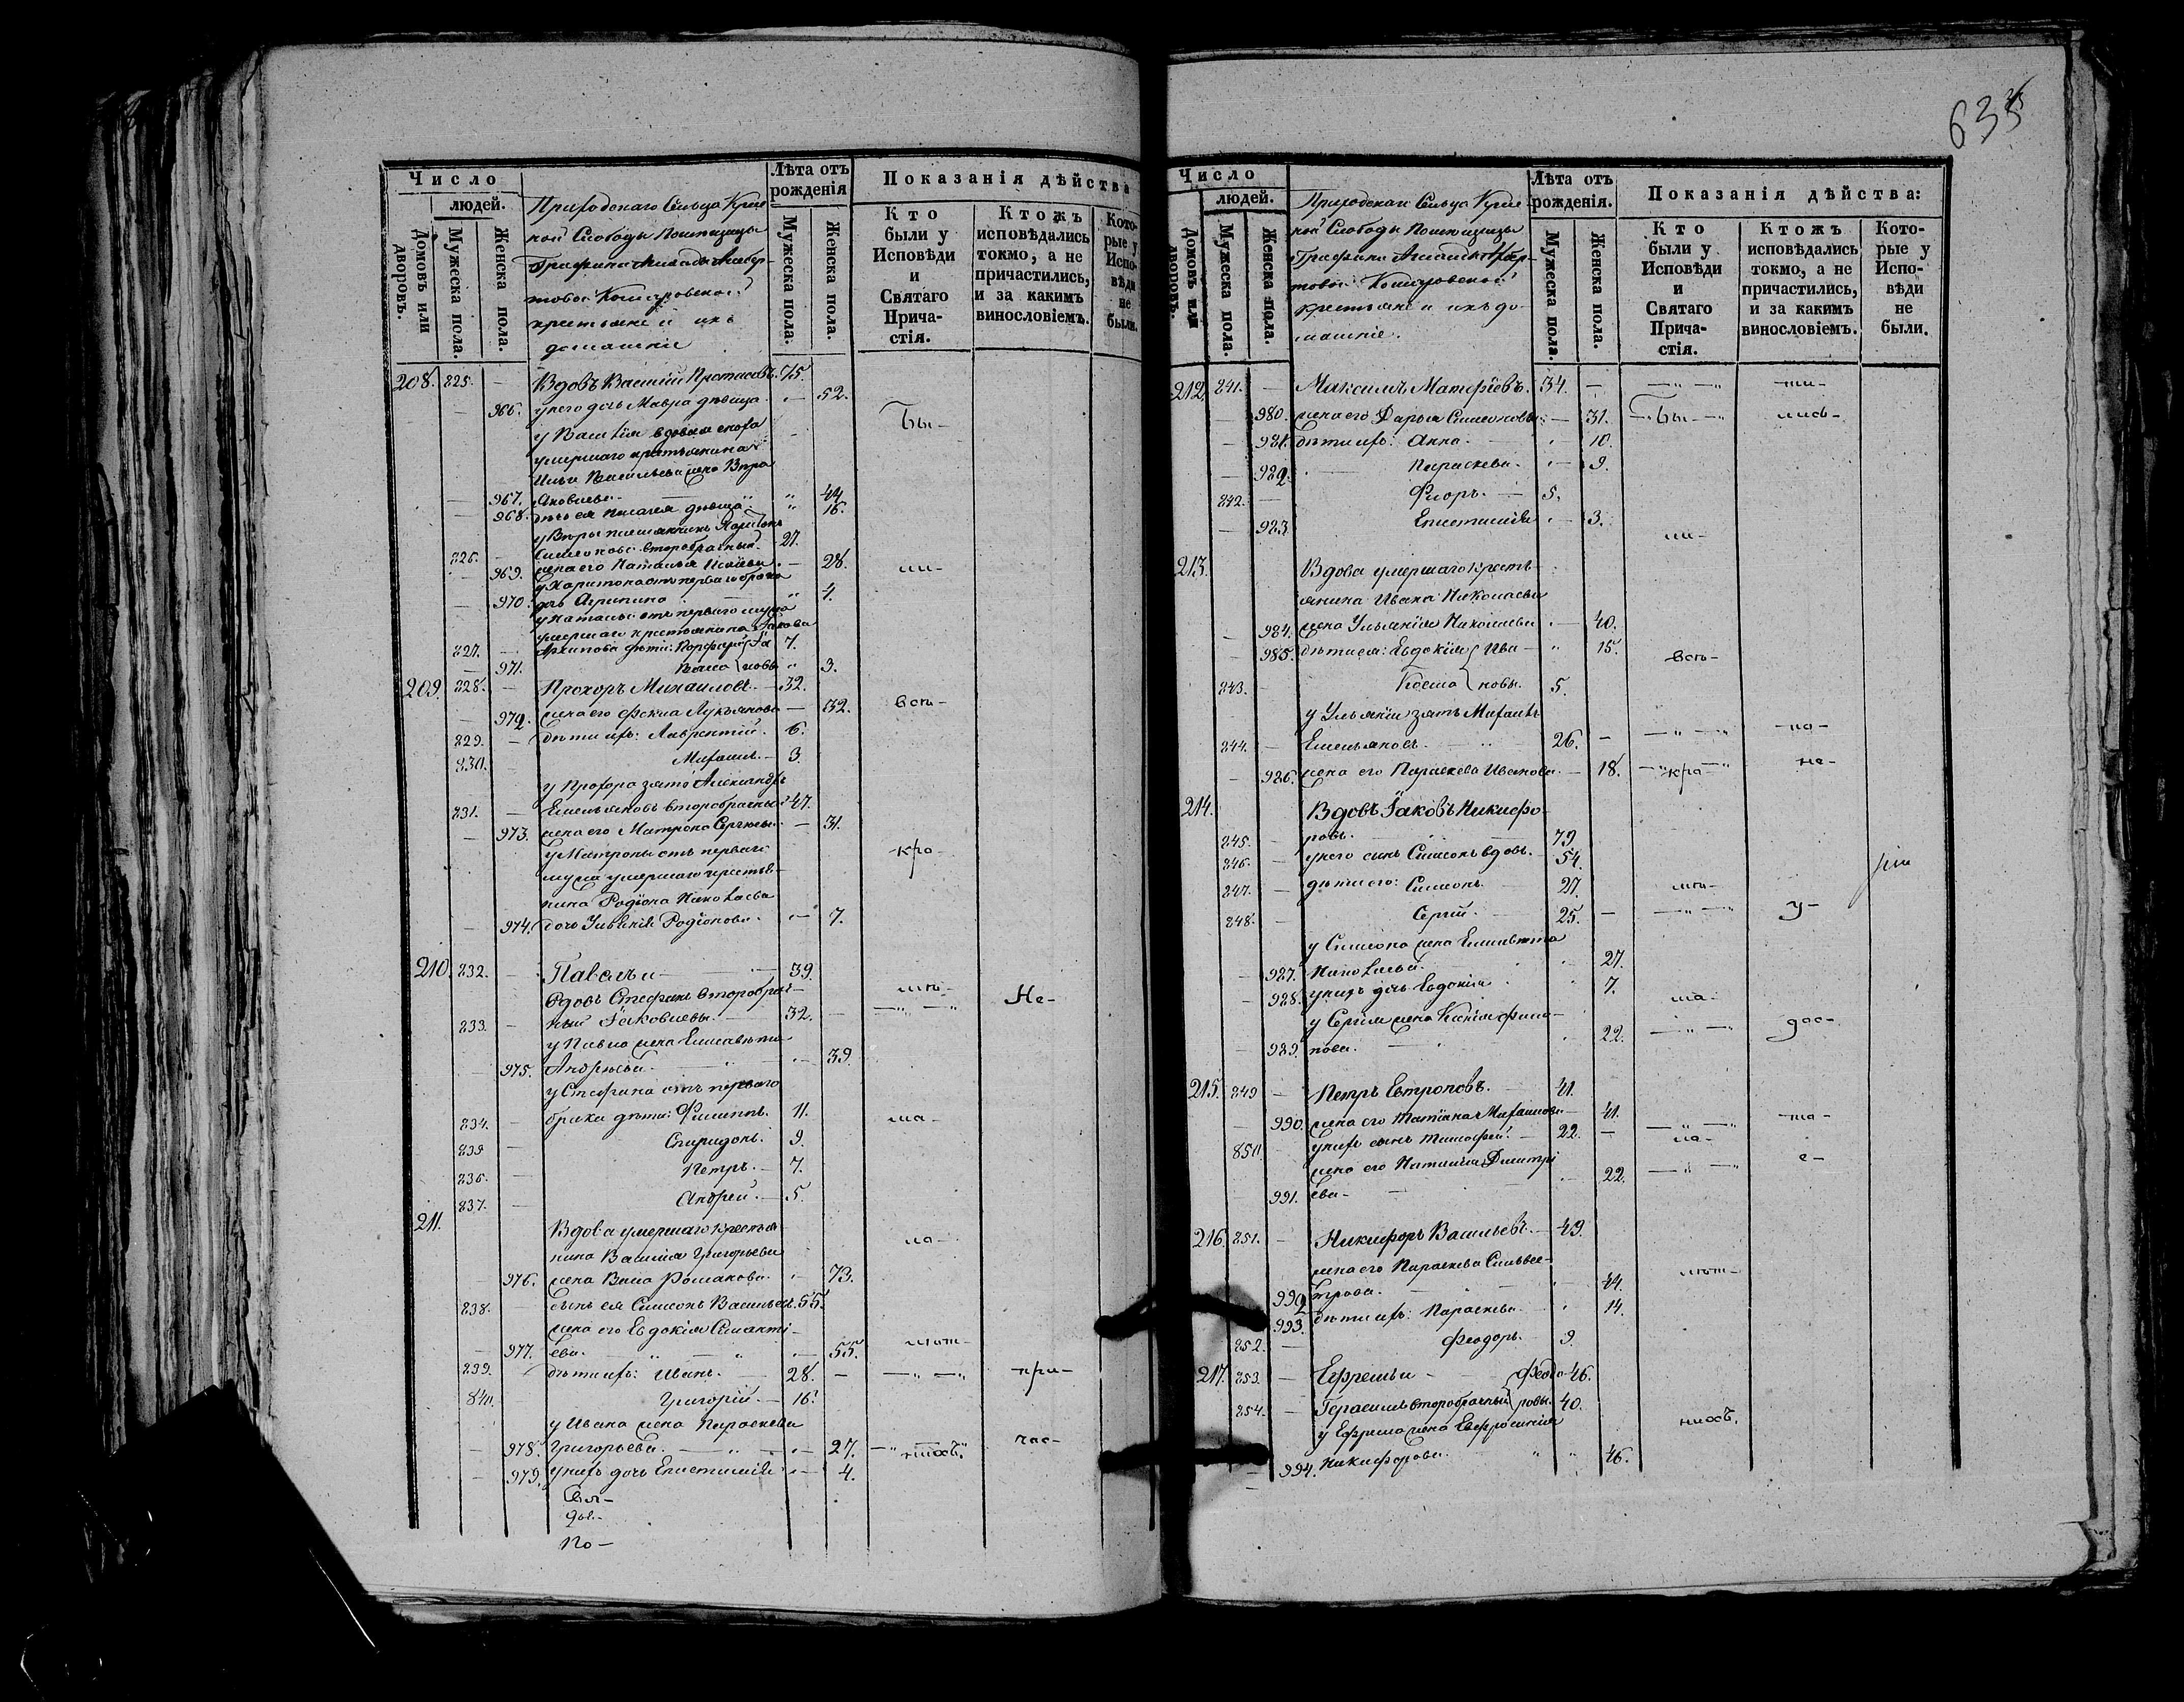 Число
людей.
Домовъ или дворовъ.
Мужеска пола.
Женска пола.
Приходскаго Сельца
ной Слободы Помѣщицы
Графини
товой
крестьяне и ихъ
домашніе
Лѣта отъ рожденія
Мужеска пола.
Женска пола.
Показанія дѣйства
Кто были у Исповѣди и Святаго Прича-стія.
Ктожъ исповѣдались токмо, а не причастились, и за какимъ винословіемъ.
Кото-рые у Испо-вѣди не были.
208. 825. — Вдовъ Василій Протасовъ. 75.
— 966. у него дочь Мавра дѣвица. — 52.
Бы-
у Василія вдовая сноха
умершаго крестьянина
Ильи Васильева жена Вѣра
— 967. Яковлева — " 44.
— 968. дочь ея Пелагея дѣвица " 16.
у Вѣры племянникъ Харитонъ
826. — Симеоновъ второбрачный. 27.
— 969. жена его Наталья — 28.
ли-
у Харитона отъ перваго брака
— 970. дочь Агрипина " 4.
у Натальи отъ перваго мужа
умершаго крестьянина Іакова
827. — Архипова дѣти: Порфирій Іа 7.
— 971. Васса ковы " 3.
209. 828. — Прохоръ Михаиловъ — 32.
— 972. жена его Фекла Лукьянова — 32.
всѣ-
829. — дѣти ихъ: Лаврентій. 6.
830. Михаилъ. — 3.
у Прохора зять Александръ
831. — Емельяновъ второбрачный 47.
— 973. жена его Матрона Сергѣева — 31.
у Матроны отъ перваго
кро-
мужа умершаго крестья-
нина Родіона Николаева
— 974. дочь Родіонова. — 7.
210. 832. — Павелъ и — 39.
вдовъ Стефанъ второбрач-
мѣ-
833. — ный Іаковлевы. — 32. — —"—" Не-
у Павла жена Елисавета
975. Андреева. — 39.
у Стефана отъ перваго
834. — брака дѣти: Филиппъ. 11.
ма-
835 Спиридонъ. 9.
836. — Петръ. — 7.
837. — Андрей. — 5.
211. Вдова умершаго крестья-
нина Василія Григорьева
ло-
— 976. жена Васса Романова. — 73.
838. — сынъ ея Симеонъ Васильевъ. 55.
жена его Евдокія
— 977. ева. — " — " — 55.
лѣт-
839. дѣти ихъ: Иванъ. — 28. — —"—" при-
840. Григорій. — 16.
у Ивана жена Параскева
— 978. Григорьева. — " — 27. —"нихъ." час-
— 979. у нихъ дочь Епистимія — 4.
Свя-
По-
635
Число
людей.
Домовъ или дворовъ.
Мужеска пола.
Женска пола.
Сельца
ной Слободы Помѣщицы
Графини
товой
крестьяне и ихъ до-
машніе.
Лѣта отъ рожденія.
Мужеска пола.
Женска пола.
Показанія дѣйства:
Кто были у Исповѣди и Святаго Прича-стія.
Ктожъ исповѣдались токмо, а не причастились, и за какимъ винословіемъ.
Кото-рые у Испо-вѣди не были.
212. 841. — Максимъ Матфѣевъ. 34. — —"—" ти-
— 980. жена его Дарья Симеонова — 31. —"Бы-" лись-
— 981. дѣти ихъ: Анна. " 10.
— 982. — Параскева. — 9.
842. — Флоръ. — 5.
— 983. Епистимія — 3.
ли-
213. Вдова умершаго кресть-
янина Ивана Николаева
— 984. жена Ульянія Николаева — 40.
— 985. дѣти ея: Евдокія Ива- " 15.
всѣ-
843. — Косма новы. 5.
у Ульяніи зять Михаилъ
844. — Емельяновъ. — " — 26. — —"—" по-
— 986. жена его Параскева Иванова. — 18. —"кро-" не-
214. Вдовъ Іаковъ Никифо-
845. — ровъ. — 79.
846. — у него сынъ Симеонъ вдовъ. 54.
847. — дѣти его: Симеонъ. 27.
мѣ-
848. — Сергій. — 25. — —"—" у-
у Симеона жена Елисавета
— 987. Николаева. — 27.
— 988. у нихъ дочь Евдокія. " 7.
ма-
у Сергія жена Ксенія
— 989. нова. — 22. —"—" дос-
215. 849 — Петръ Евтроповъ. 41.
— 990. жена его Татіана Михаилова — 41. —"—" то-
850. у нихъ сынъ Тимофей. — 22. —
ло-
жена его Наталія Димитрі
991. ева — 22. —"—" е-
216. 851. — Никифоръ Васильевъ. — 49.
жена его Параскева Сильвес-
992. трова. — 44.
лѣт-
993. дѣти ихъ: Параскева. — " 14.
852. — Феодоръ. 9.
217. 853. — Ефремъ и — Феодо 46.
854. — Герасимъ второбрачный ровы. 40.
нихъ.
у Ефрема жена Евфросинія
— 994. Никифорова. " " 46.